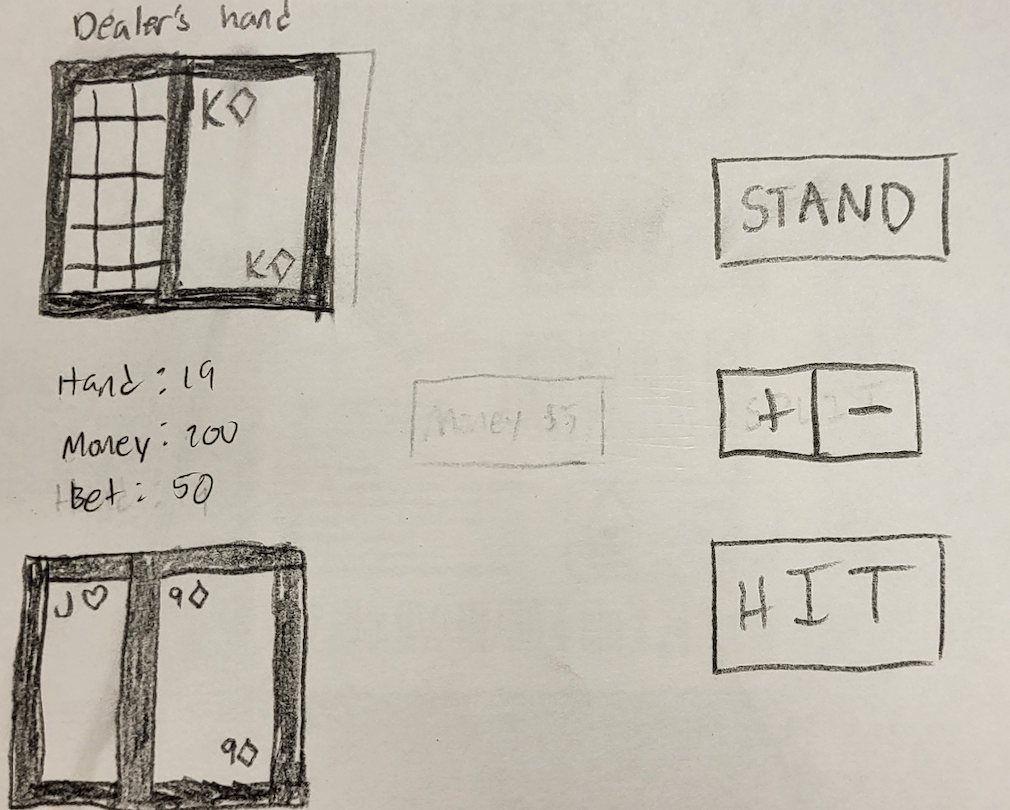 Dealer's hand
K◊
K◊
STAND
Hand: 19
Money: 200
Bet: 50
Money $5
+ -
J♡ 9◊
9◊
HIT